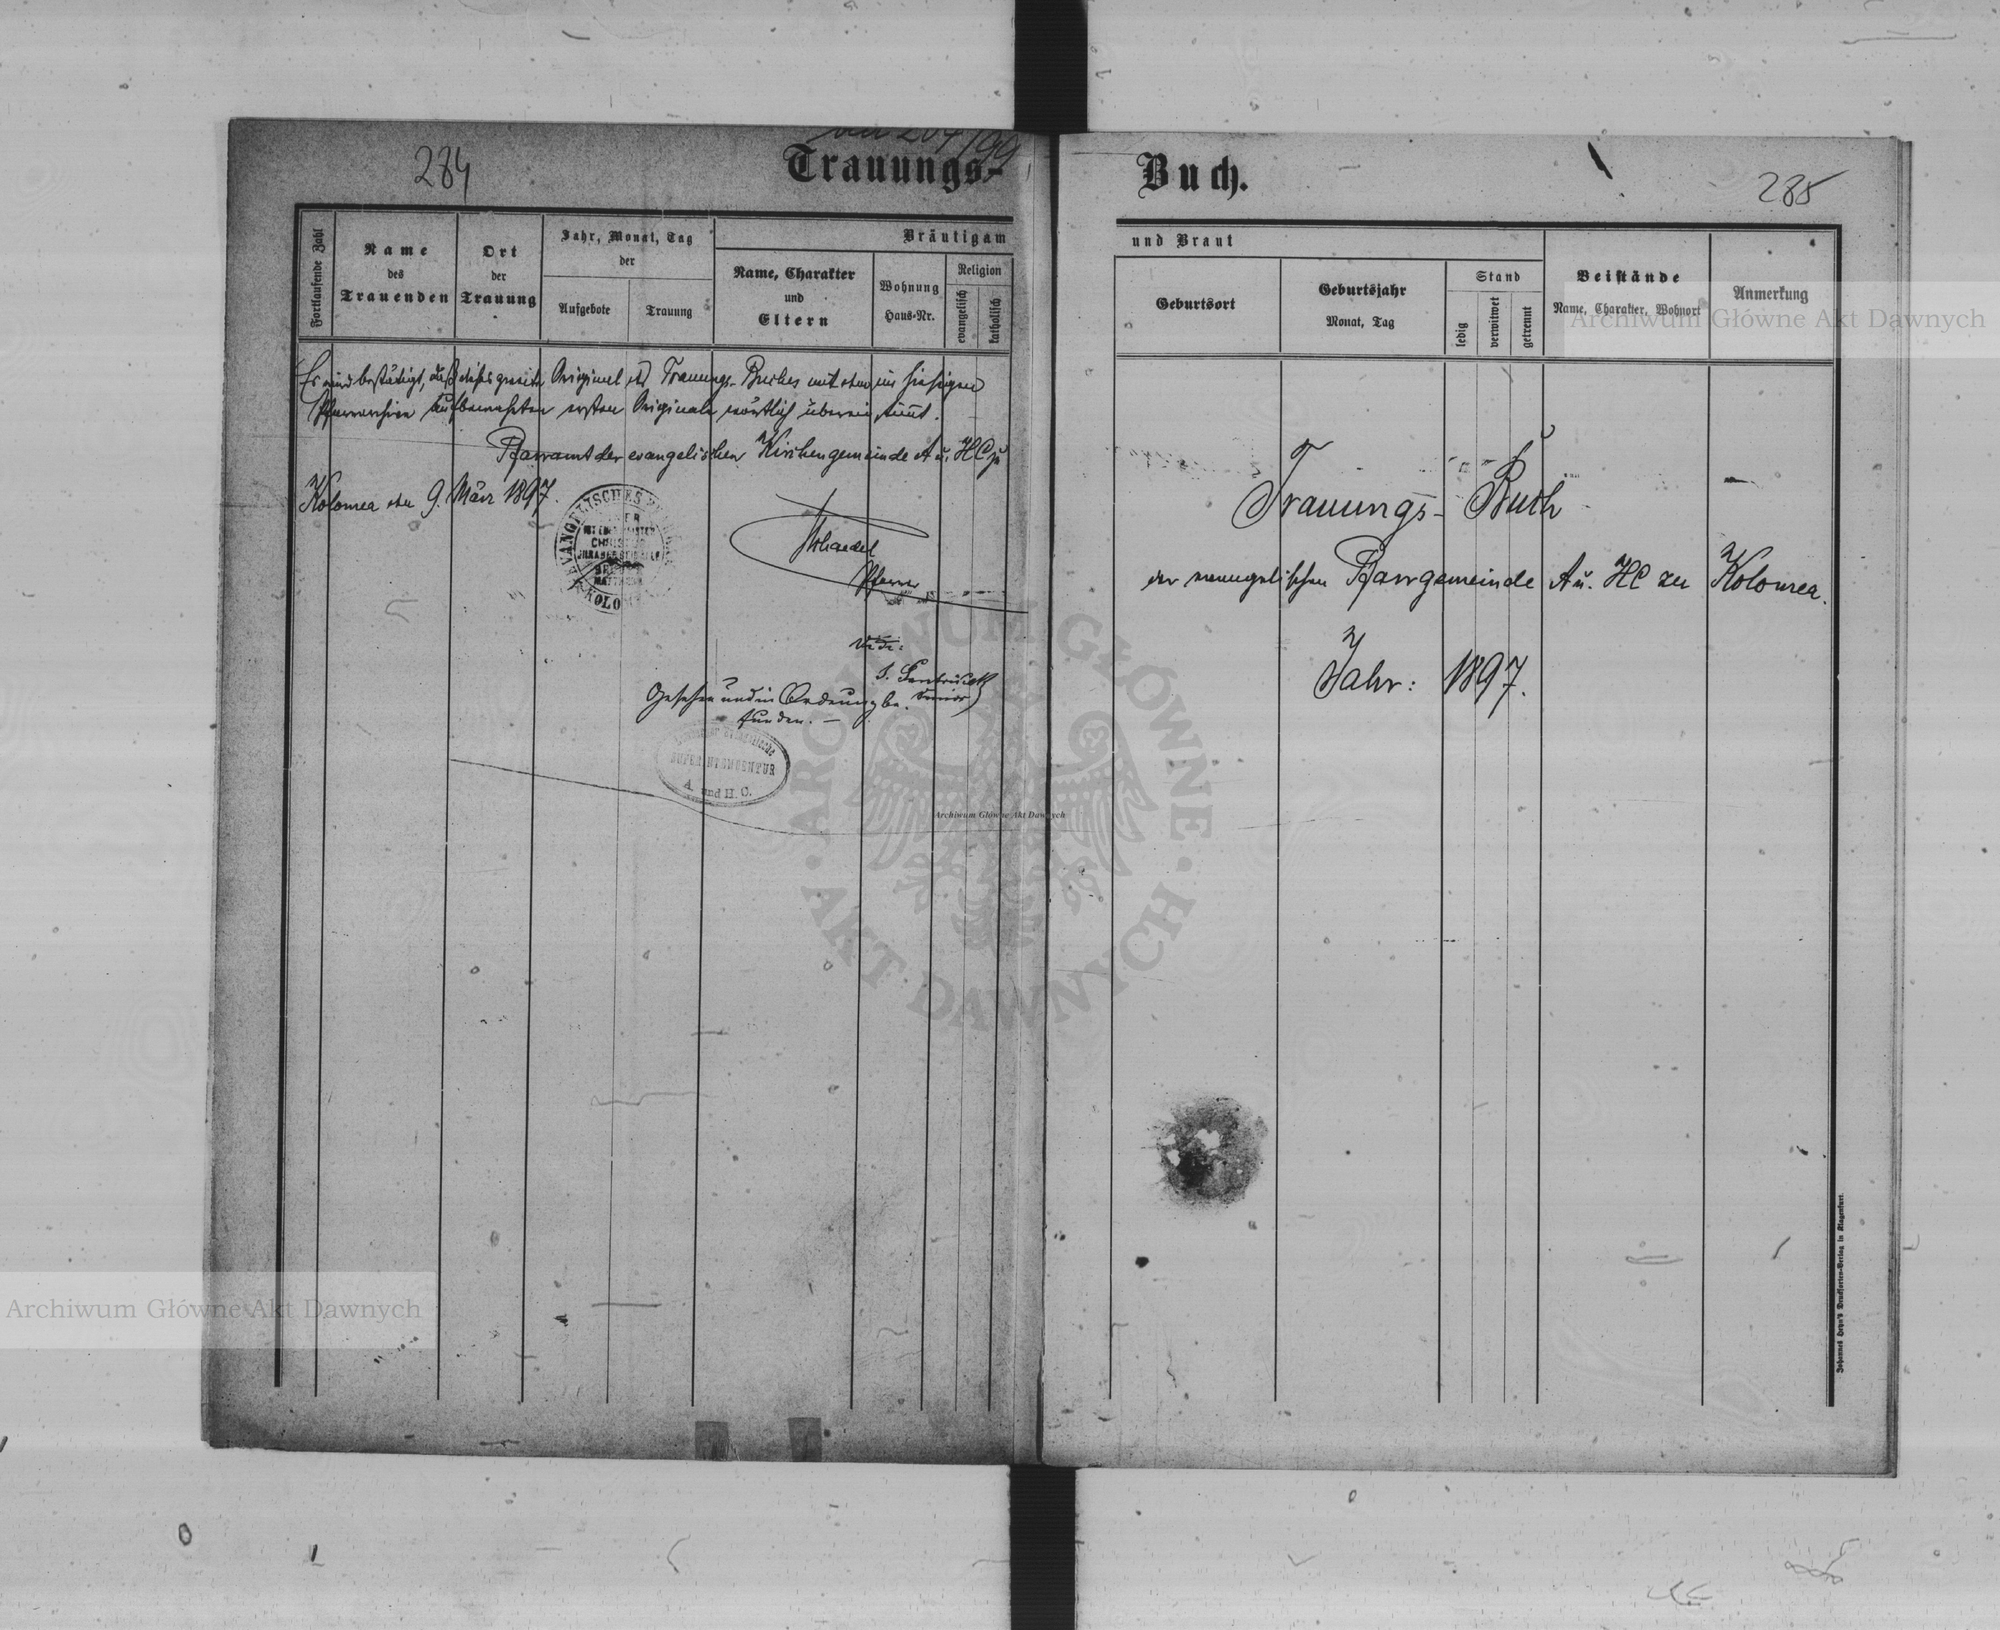 284
Trauungs-
Fortlaufende Zahl
Name
des
Trauenden
Ort
der
Trauung
Jahr, Monat, Tag
der
Aufgebote
Trauung
Bräutigam
Name, Charakter
und
Eltern
Wohnung
Haus-Nr.
Religion
evangelisch
katholisch
Es wird bestätigt, daß dieses zweite Original des Trauungs-Buches mit dem im hiesigen
Pfarrarchive aufbewahrten ersten Originale wörtlich übereinstimmt.
Pfarramt der evangelischen Kirchengemeinde A u. HC zu
Kolomea den 9. März 1897.
Pfarrer
Vidi:
Senior
Gesehen und in Ordnung be-
funden. —
SUPERINTENDENTUR
A. und H. C.
Buch.
285
und Braut
Geburtsort
Geburtsjahr
Monat, Tag
Stand
ledig
verwitwet
getrennt
Beistände
Name, Charakter, Wohnort
Anmerkung
Trauungs-Buch
der evangelischen Pfarrgemeinde A u. HC zu Kolomea.
Jahr: 1897.
Johannes Heyn's Drucksorten-Verlag in Klagenfurt.
Archiwum Główne Akt Dawnych
Archiwum Główne Akt Dawnych
Archiwum Główne Akt Dawnych
ARCHIWUM GŁÓWNE
AKT DAWNYCH